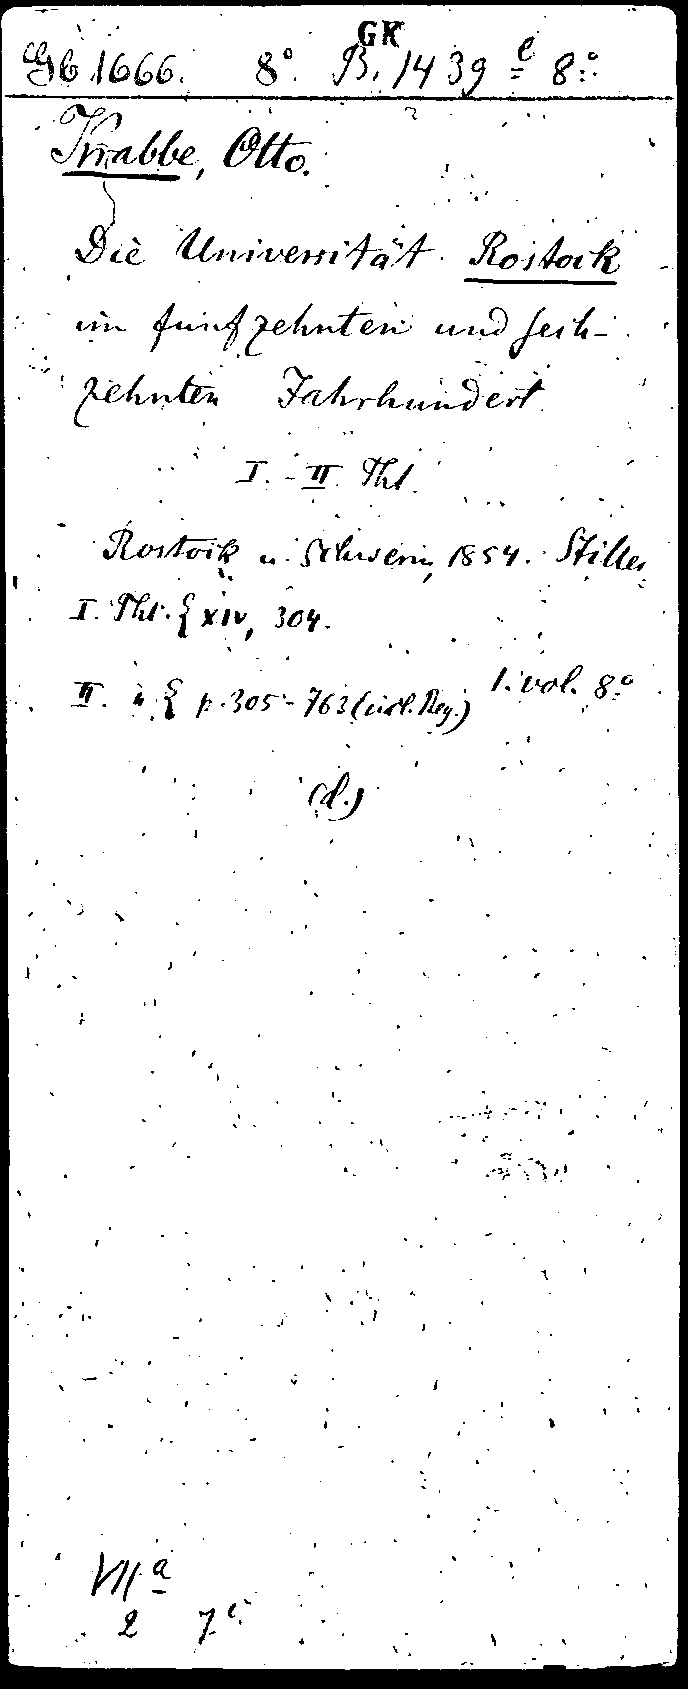 GK
Gb 1666. 8°. B. 1439 e 8°.
Krabbe, Otto.
Die Universität Rostock
im fünfzehnten und sech-
zehnten Jahrhundert
I. - II. Thl.
Rostock u. Schwerin, 1854. Stiller
I. Thl. { XIV, 304.
II. " { p. 305 - 763 (incl. Reg.) 1. vol. 8°
(d.)
VII a
2 7